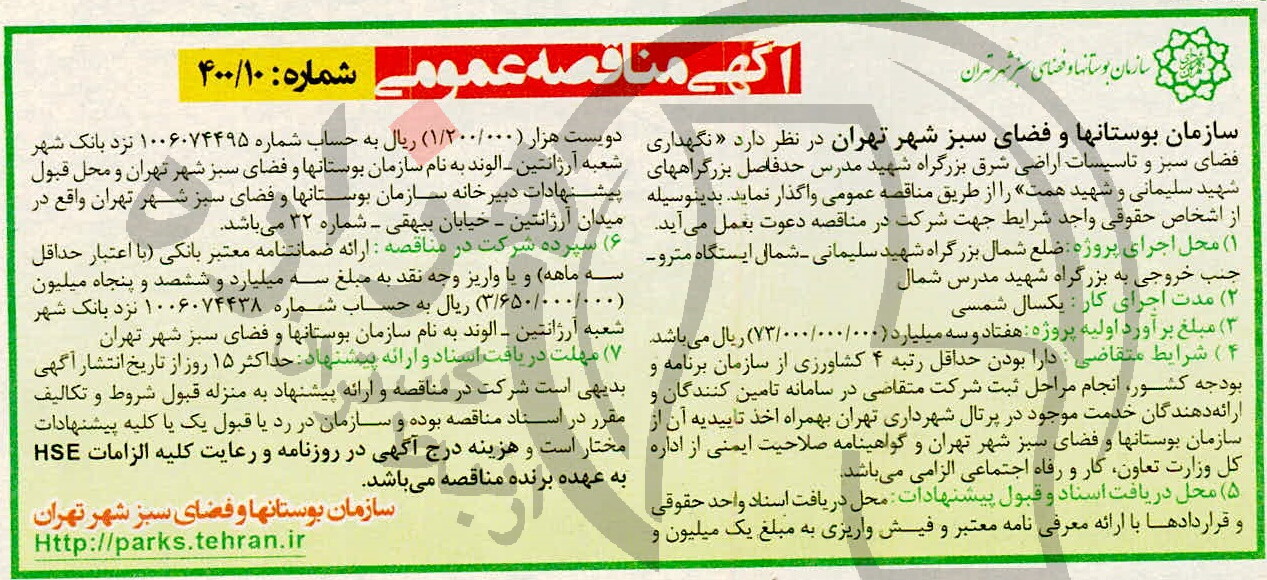 سازمان بوستانها و فضای سبز شهر تهران
آگهی مناقصه عمومی
شماره: ۴۰۰/۱۰
سازمان بوستانها و فضای سبز شهر تهران در نظر دارد «نگهداری
فضای سبز و تاسیسات اراضی شرق بزرگراه شهید مدرس حدفاصل بزرگراههای
شهید سلیمانی و شهید همت» را از طریق مناقصه عمومی واگذار نماید. بدینوسیله
از اشخاص حقوقی واحد شرایط جهت شرکت در مناقصه دعوت بعمل می‌آید.
۱) محل اجرای پروژه: ضلع شمال بزرگراه شهید سلیمانی ـ شمال ایستگاه مترو ـ
جنب خروجی به بزرگراه شهید مدرس شمال
۲) مدت اجرای کار: یکسال شمسی
۳) مبلغ برآورد اولیه پروژه: هفتاد و سه میلیارد (۷۳/۰۰۰/۰۰۰/۰۰۰) ریال می‌باشد.
۴) شرایط متقاضی: دارا بودن حداقل رتبه ۴ کشاورزی از سازمان برنامه و
بودجه کشور، انجام مراحل ثبت شرکت متقاضی در سامانه تامین کنندگان و
ارائه‌دهندگان خدمت موجود در پرتال شهرداری تهران بهمراه اخذ تاییدیه آن از
سازمان بوستانها و فضای سبز شهر تهران و گواهینامه صلاحیت ایمنی از اداره
کل وزارت تعاون، کار و رفاه اجتماعی الزامی می‌باشد.
۵) محل دریافت اسناد و قبول پیشنهادات: محل دریافت اسناد واحد حقوقی
و قراردادها با ارائه معرفی نامه معتبر و فیش واریزی به مبلغ یک میلیون و
دویست هزار (۱/۲۰۰/۰۰۰) ریال به حساب شماره ۱۰۰۶۰۷۴۴۹۵ نزد بانک شهر
شعبه آرژانتین ـ الوند به نام سازمان بوستانها و فضای سبز شهر تهران و محل قبول
پیشنهادات دبیرخانه سازمان بوستانها و فضای سبز شهر تهران واقع در
میدان آرژانتین ـ خیابان بیهقی ـ شماره ۳۲ می‌باشد.
۶) سپرده شرکت در مناقصه: ارائه ضمانتنامه معتبر بانکی (با اعتبار حداقل
سه ماهه) و یا واریز وجه نقد به مبلغ سه میلیارد و ششصد و پنجاه میلیون
(۳/۶۵۰/۰۰۰/۰۰۰) ریال به حساب شماره ۱۰۰۶۰۷۴۴۳۸ نزد بانک شهر
شعبه آرژانتین ـ الوند به نام سازمان بوستانها و فضای سبز شهر تهران
۷) مهلت دریافت اسناد و ارائه پیشنهاد: حداکثر ۱۵ روز از تاریخ انتشار آگهی
بدیهی است شرکت در مناقصه و ارائه پیشنهاد به منزله قبول شروط و تکالیف
مقرر در اسناد مناقصه بوده و سازمان در رد یا قبول یک یا کلیه پیشنهادات
مختار است و هزینه درج آگهی در روزنامه و رعایت کلیه الزامات HSE
به عهده برنده مناقصه می‌باشد.
سازمان بوستانها و فضای سبز شهر تهران
Http://parks.tehran.ir